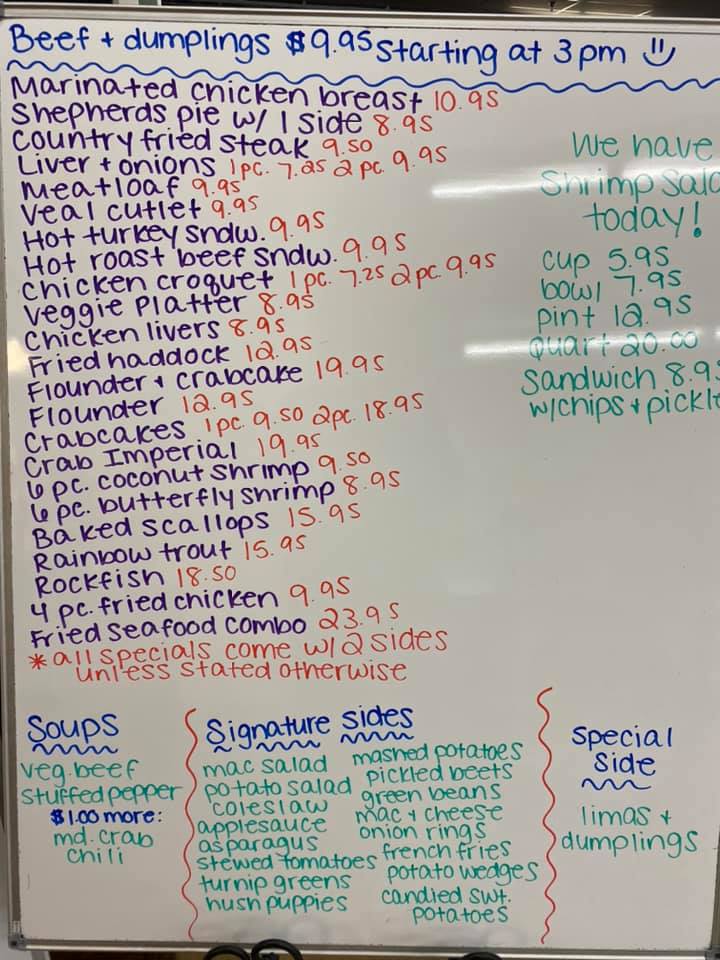 Beef + dumplings $9.95 starting at 3pm
Marinated chicken breast 10.95
Shepherds pie w/ 1 side 8.95
Country fried steak 9.50
Liver + onions 1pc. 7.25 2 pc. 9.95
Meatloaf 9.95
Veal cutlet 9.95
Hot turkey sndw. 9.95
Hot roast beef sndw. 9.95
Chicken croquet 1pc. 7.25 2pc. 9.95
Veggie Platter 8.95
Chicken livers 8.95
Fried haddock 12.95
Flounder + crabcake 19.95
Flounder 12.95
Crabcakes 1pc. 9.50 2pc. 18.95
Crab Imperial 19.95
6 pc. coconut shrimp 9.50
6 pc. butterfly shrimp 8.95
Baked scallops 15.95
Rainbow trout 15.95
Rockfish 18.50
4 pc. fried chicken 9.95
Fried seafood combo 23.95
*all specials come w/ 2 sides
unless stated otherwise
We have
Shrimp
today!
cup 5.95
bowl 7.95
pint 12.95
quart 20.00
Sandwich
w/chips +
Soups
veg. beef
stuffed pepper
$1.00 more:
md. crab
chili
Signature sides
mac salad
potato salad
coleslaw
applesauce
asparagus
stewed tomatoes
turnip greens
hush puppies
mashed potatoes
pickled beets
green beans
mac + cheese
onion rings
french fries
potato wedges
candied swt.
potatoes
Special
Side
limas +
dumplings